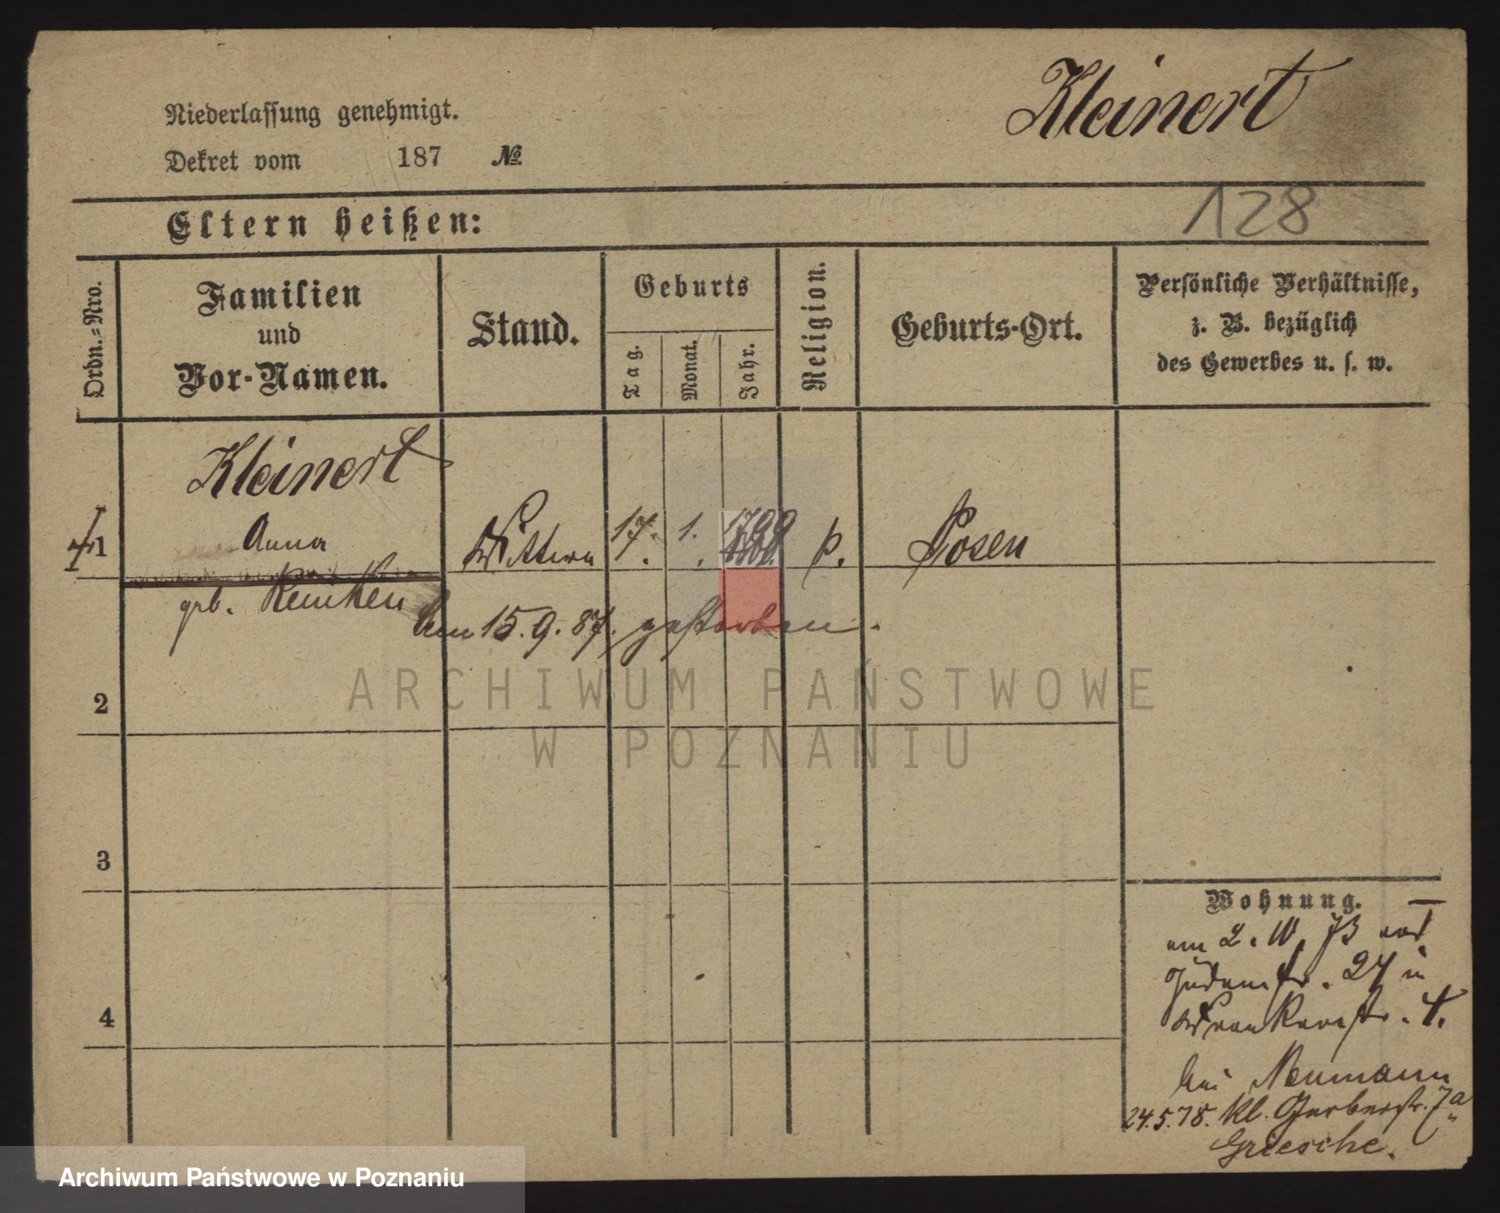 Niederlassung genehmigt.
Dekret vom 187 №
Kleinert
128
Eltern heißen:
Ordn.-Nro.
Familien
und
Vor-Namen.
Stand.
Geburts
Tag.
Monat.
Jahr.
Religion.
Geburts-Ort.
Persönliche Verhältnisse,
z. B. bezüglich
des Gewerbes u. s. w.
Kleinert
1 Anna 17. 1. p. Posen
geb.
Am 15.9.87. gestorben.
ARCHIWUM PAŃSTWOWE
W POZNANIU
2
3
4
Wohnung.
Judenstr. 27 in
4.
bei Neumann
24.5.78. Kl. Gerberstr. 7a
Griesche.
Archiwum Państwowe w Poznaniu